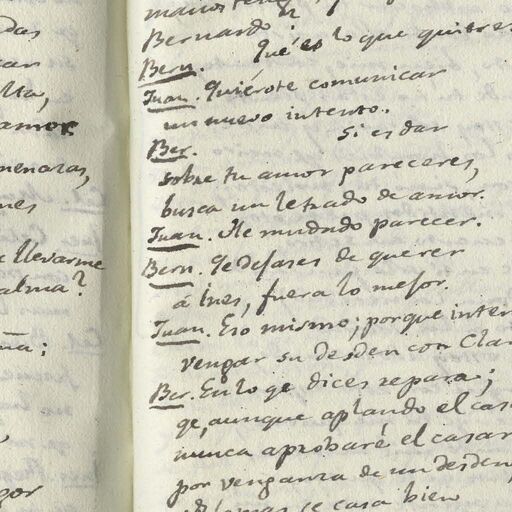 das
tar
lta,
amor
menazas,
nes
llevarme
alma?
ma;
gor
manos
Bernardo
Bern. Qué es lo que quieres
Juan. Quiérote comunicar
un nuevo intento.
Ber. Si es dar
sobre tu amor pareceres,
busca un letrado de amor.
Juan. He mudado parecer.
Bern. Qe dejases de querer
á Ines, fuera lo mejor.
Juan. Eso mismo; porque inten
vengar su desden con Clar
Ber. En lo qe dices repara;
qe, aunque aplaudo el cas
nunca aprobaré el casar
por venganza de un desden,
se casa bien